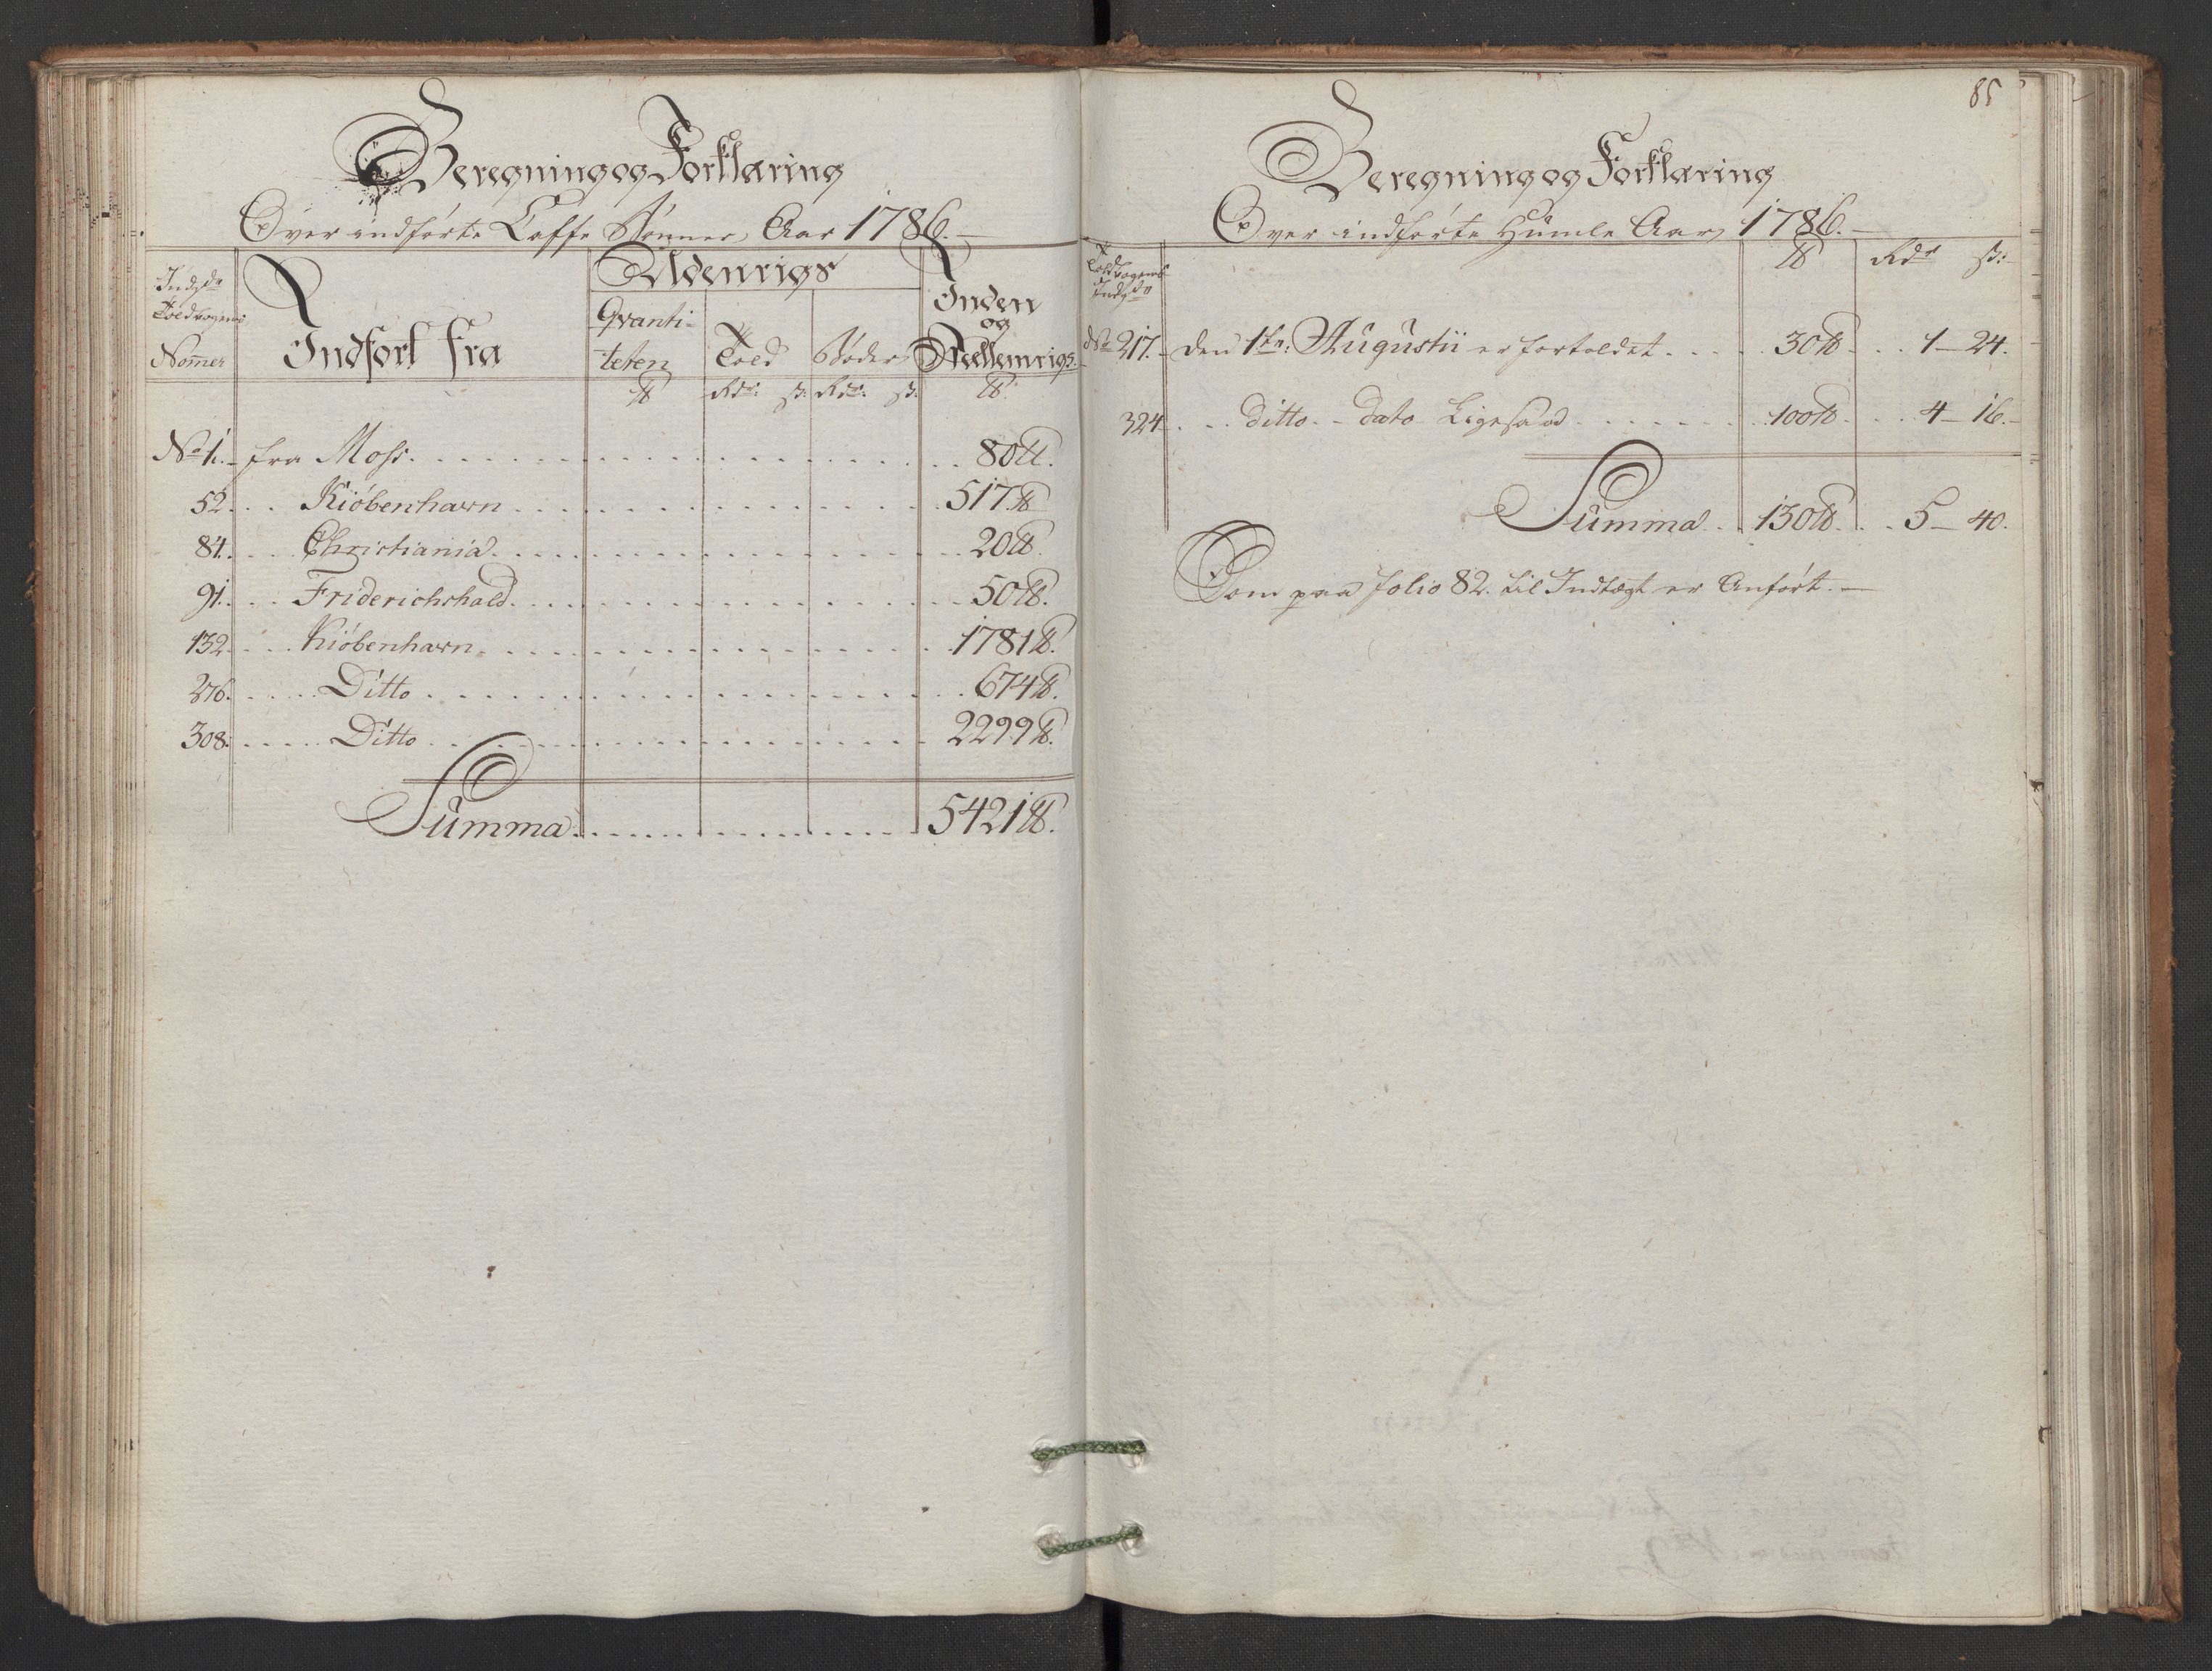 Beregning og Forklaring
Over indförte Caffe Bönner Aar 1786.
Indg:de Toldvogens Nomer
Indfört fra
Udenrigs
Qvanti-teten
Told
Bøder
Inden og Mellemrigs.
℔ Rdr: s: Rdr: s: ℔
No 1. fra Moss. 80 ℔.
52. Kiöbenhavn 517 ℔
84. Christiania. 20 ℔.
91. Friderichshald. 50 ℔.
132. Kiöbenhavn. 1781 ℔.
276. Ditto 674 ℔.
308. Ditto 2299 ℔.
Summa. 5421 ℔.
85
Beregning og Forklaring
Over indförte Humle Aar 1786.
Toldvogens Indg:de
℔ Rdr s:
No 217. den 1te: Augustii er fortoldet 30 ℔ 1 - 24.
324. ditto - dato Ligesaa 100 ℔ 4 - 16.
Summa 130 ℔. 5 - 40.
Som paa Folio 82. til Indtægt er Anfört.